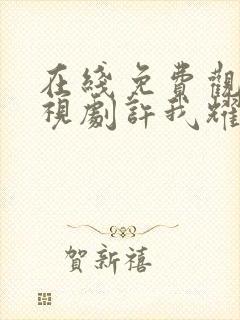 在綫免費觀
視劇許我耀
賀新禧